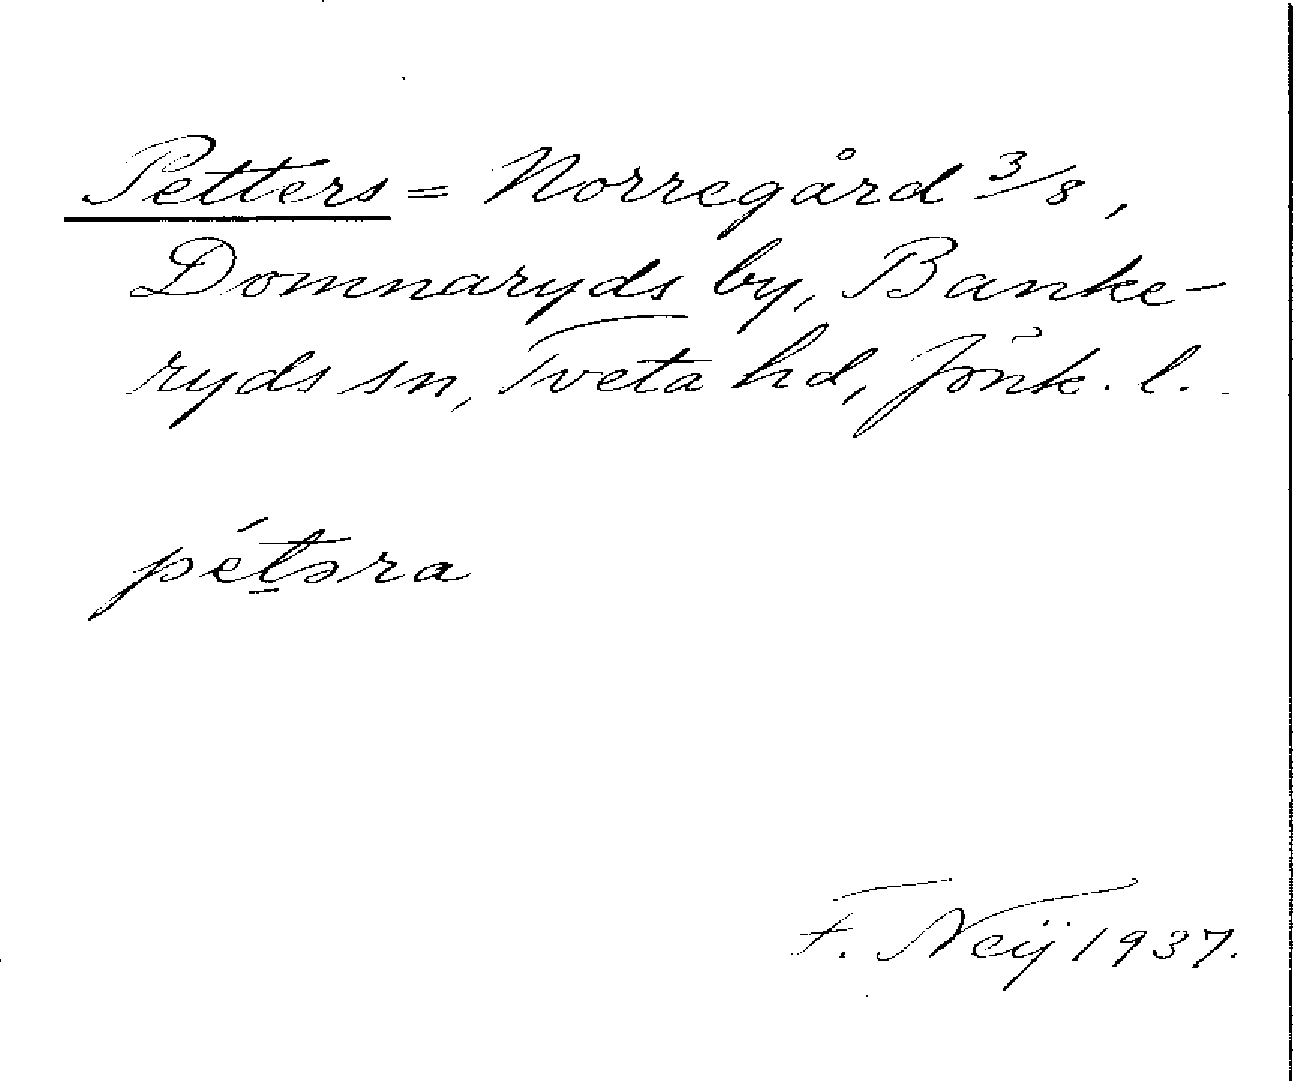 Petters = Norregård 3/8,
Domnaryds by, Banke-
ryds sn, Tveta hd, Jönk. l.
pét̠əra
F. Neij 1937.